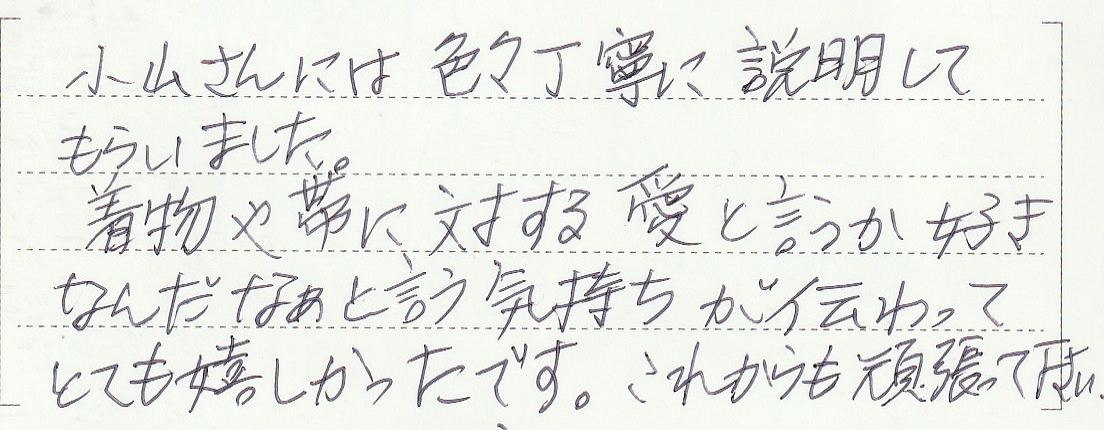 小山さんには色々丁寧に説明して
もらいました。
着物や帯に対する愛と言うか好き
なんだなぁと言う気持ちが伝わって
とても嬉しかったです。これからも頑張って下さい。